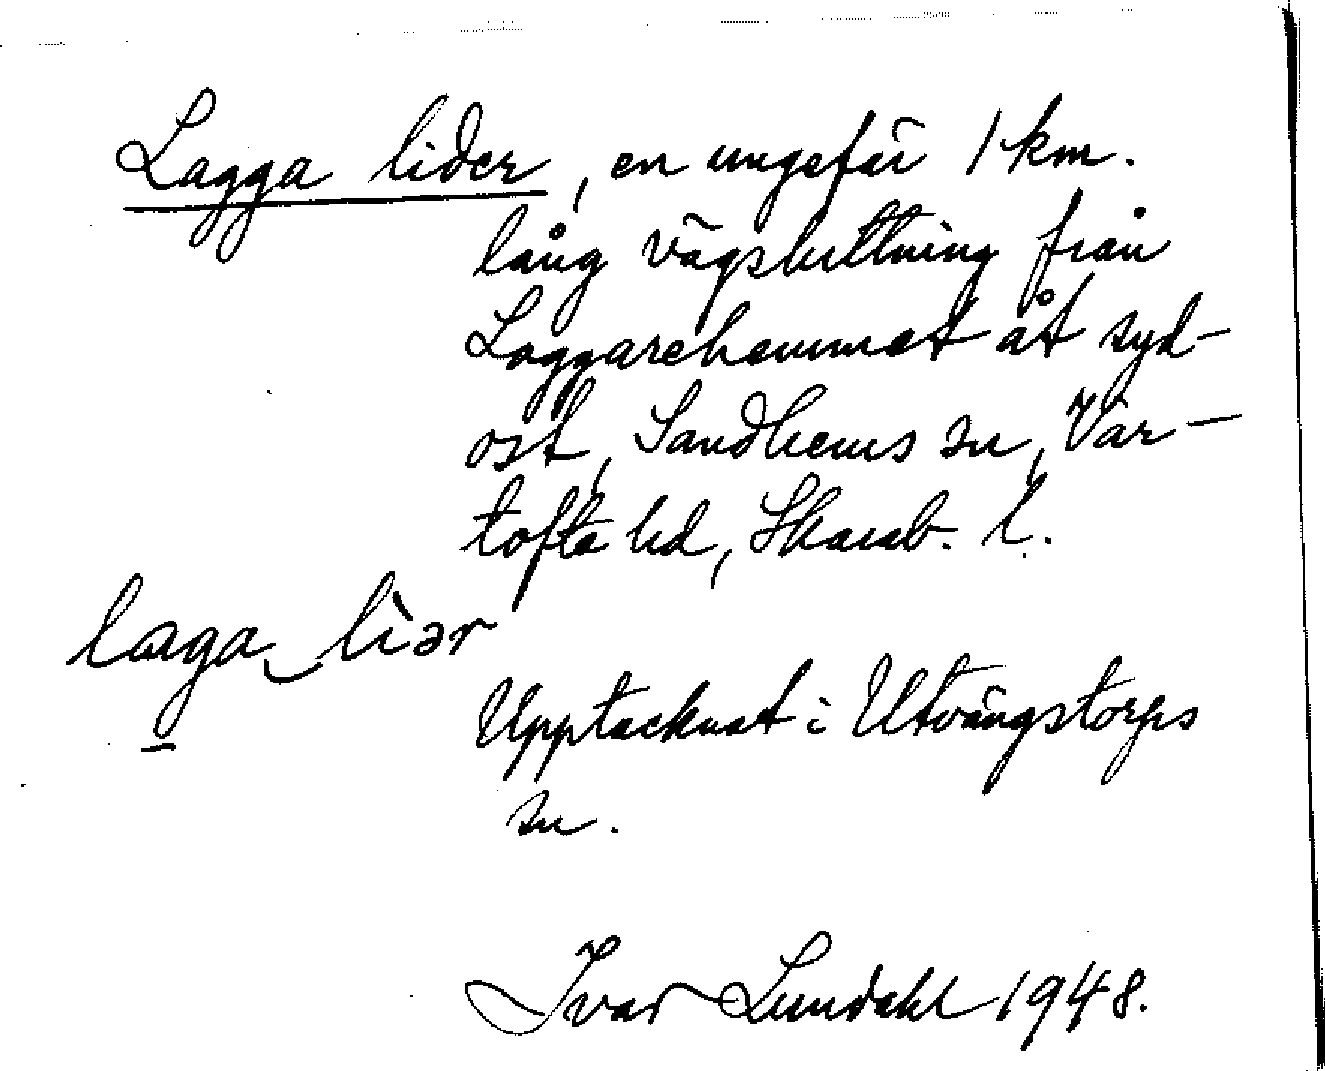 Lagga lider, en ungefär 1 km.
lång vägsluttning från
Laggarehemmet åt syd-
ost, Sandhems sn, Var-
tofta hd, Skarab. l.
laga liər
Upptecknat i Utvängstorps
sn.
Ivar Lundahl 1948.